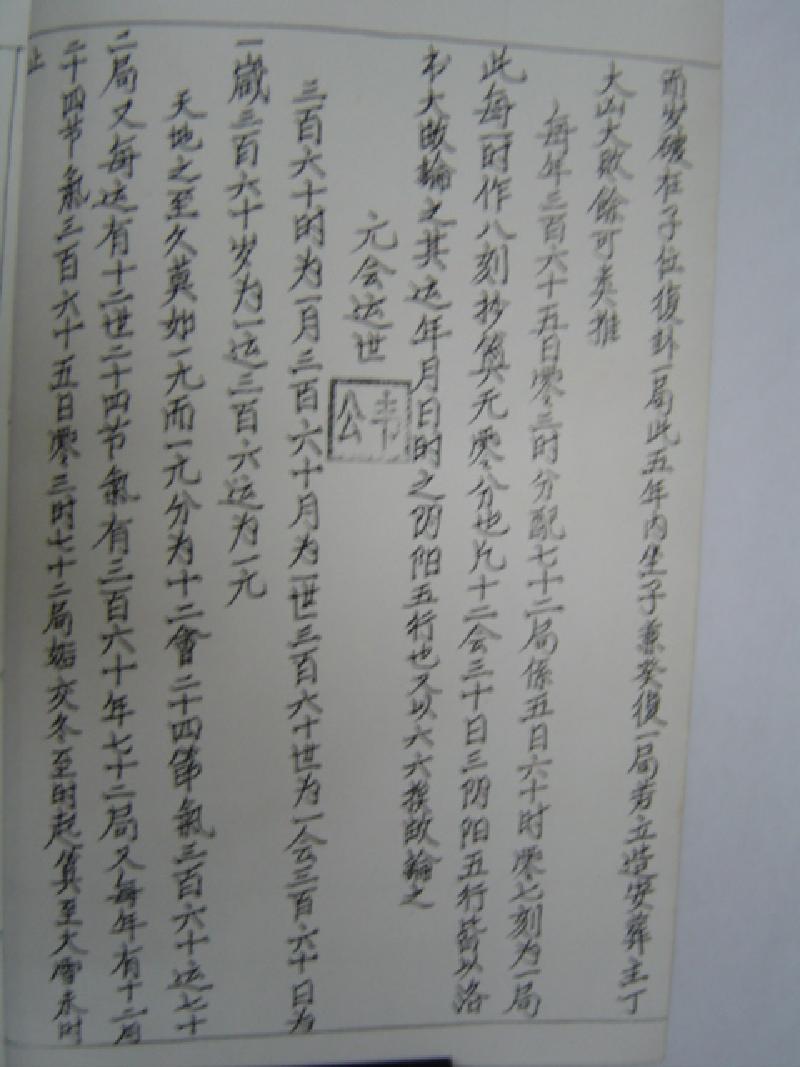 而岁破在子位復卦一局此五年内坐子兼癸復一局若立造安葬主丁
大凶大败餘可类推
每年三百六十五日零三时分配七十二局係五日六十时零七刻为一局
此每一时作八刻抄算无零分也凡十二会三十日三阴阳五行皆以洛
书大敗論之其运年月日时之阴阳五行也又以六六挨敗論之
元会运世
韦公
三百六十时为一月三百六十月为一世三百六十世为一会三百六十日为
一歲三百六十岁为一运三百六运为一元
天地之至久莫如一元而一元分为十二會二十四節氣三百六十运七十
二局又每运有十二世二十四节氣有三百六十年七十二局又每年有十二月
二十四节氣三百六十五日零三时七十二局始交冬至时起算至大雪末时
止